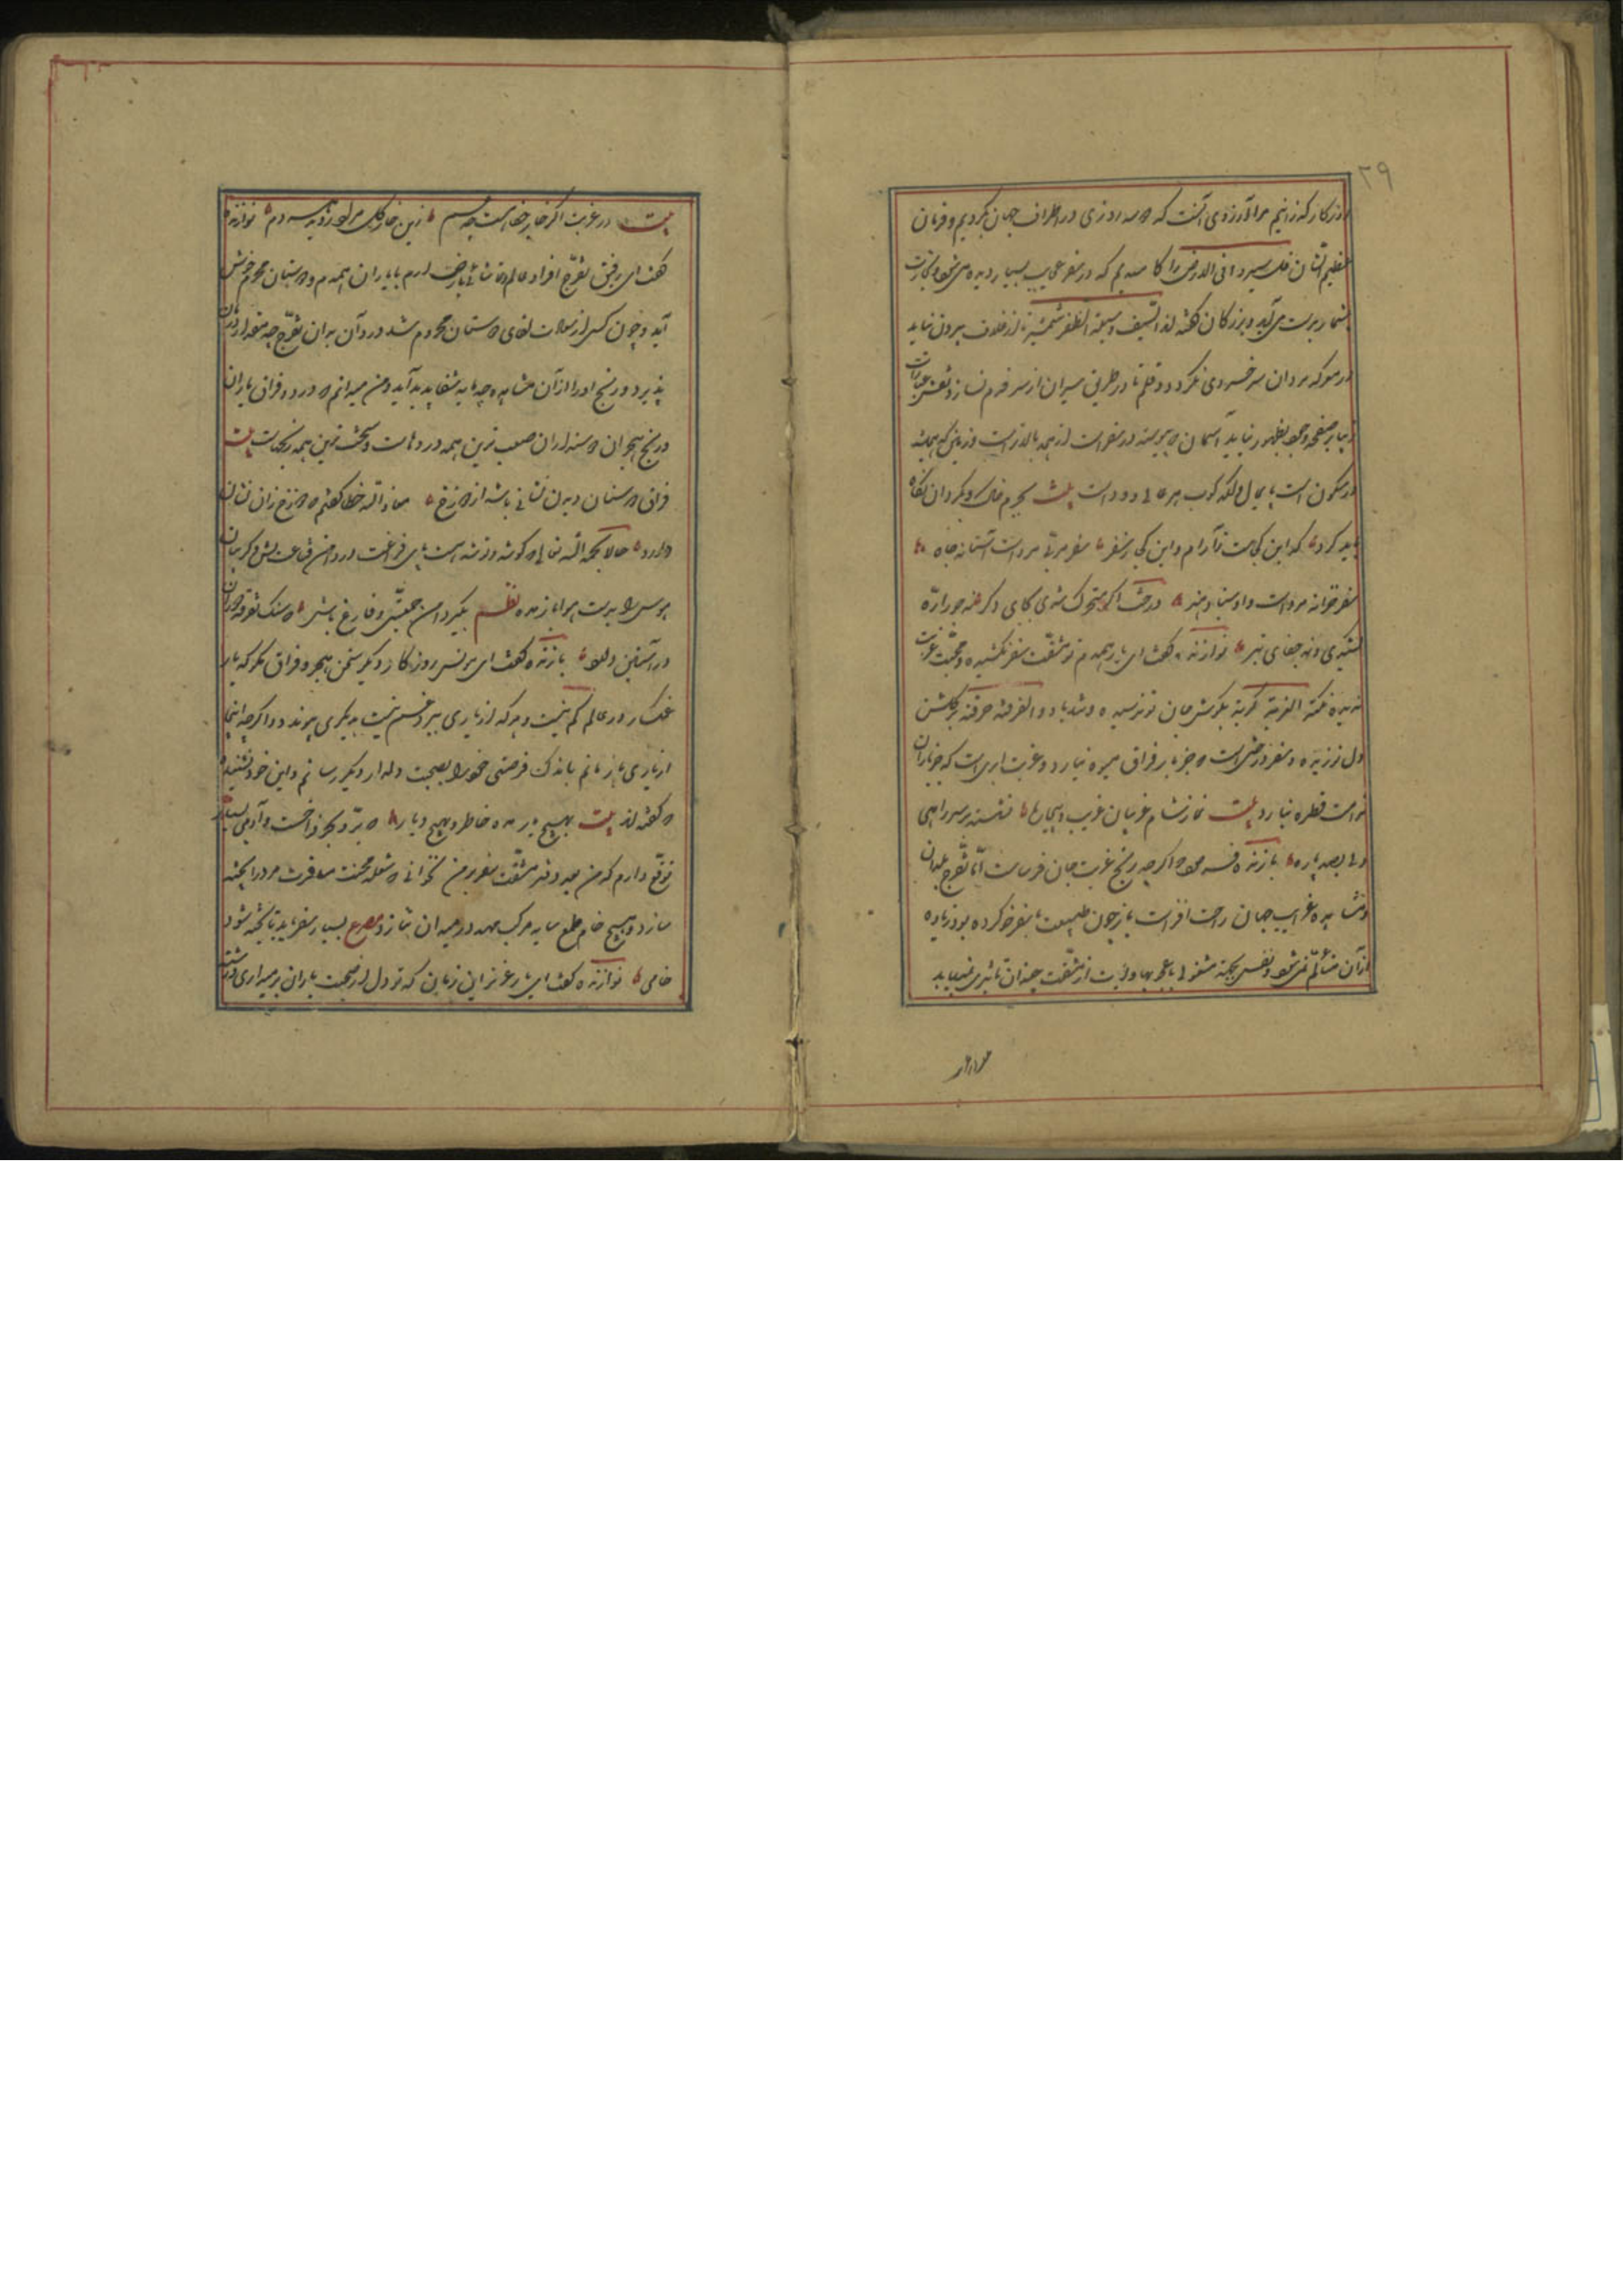 ۲۹
روزگار گذرانیم مرا آرزوی آنست که دو سه روزی در اطراف جهان بگردیم و فرمان
عظیم الشان قل سیروا فی الارض را کار بندیم که در سفر عجایب بسیار دیده می‌شود و تجارب
بیشمار بدست می‌آید و بزرگان گفته‌اند السفر وسیلة الظفر شمشیر تا از غلاف بیرون نیاید
در معرکه مردان سرخ روی نگردد و قلم تا در طریق سیران از سر قدم نسازد نقش عبارات
زیبا بر صفحه وجود بظهور نیاید آسمان که پیوسته در سفرست از همه بالاترست و زمین که همیشه
در سکون است پایمال و لگدکوب هر عالی و دونست بیت بجرم خاک و گردون نگاه
باید کرد که این کجاست ز آرام و آن کجا ز سفر سفر مربی مردست و آستانه جاه
سفر خزانه مردست و اوستاد هنر درخت اگر متحرک شدی ز جای دگر نه جور اره
کشیدی و نه جفای تبر نوازنده گفت ای یار همدم تو مشقت سفر نکشیده و محنت غربت
ندیده و نکته الغربة کربة بگوش جان تو نرسیده و تندباد الفرقة حرقة بر گلشن
دل تو نوزیده و سفر درختیست که جز بار فراق میوه نیارد و غربت ابریست که جز باران
مذلت قطره نبارد بیت نماز شام غریبان غریب و بیچاره نشسته بر سر راهی
دلی بصد پاره بازنده فرمود اگرچه رنج غربت جان فرساست اما تفرج بلدان
و مشاهده غرایب جهان راحت افزاست باز چون طبیعت با سفر خو کرده بود زیاده
از آن متألم نمی‌شود و نفس بجهت مشغولی باعجوبهای ولایت از مشقت چندان تأثیری نمی‌یابد
بیت در غربت اگر خار جفا هست چه غم زین خار گل مراد روید همه دم نوازنده
گفت ای رفیق تفرج اطراف عالم و تماشای ریاض ارم با یاران همدم و دوستان محرم خوش
آید و چون کسی از سعادت لقای دوستان محروم شد درد آن بدان تفرج چه مقدار درمان
پذیرد و رنج او را از آن مشاهده چه مایه شفا پدید آید و من میدانم که درد فراق یاران
و رنج هجران دوستداران صعب‌ترین همه دردهاست و سخت‌ترین همه رنجهاست بیت
فراق دوستان دیدن نشانی باشد از دوزخ معاذ الله خطا گفتم که دوزخ زان نشان
دارد حالا بحمد الله تعالی که گوشه و توشه است پای فراغت در دامن قناعت کش و گریبان
هوس را بدست هوا باز مده نظم بگیر دامن جمعیتی و فارغ باش که سنگ تفرقه دوران
در آستین دارد بازنده گفت ای مونس روزگار دیگر سخن هجر و فراق مگو که یار
غمگسار در عالم کم نیست و هر که از یاری ببرد غم نیست به دیگری پیوندد و اگرچه اینجا
از یاری باز مانم باندک فرصتی خود را بصحبت دلدار دیگر رسانم و این خود شنیده
که گفته‌اند بیت بهیچ یار مده خاطر و بهیچ دیار که بر و بحر فراخست و آدمی بسیار
توقع دارم که من بعد دفتر مشقت سفر بر من نخوانی که شعله محنت مسافرت مرد را پخته
سازد و هیچ خام طمع سایه مرکب امید در میدان نتازد مصرع بسیار سفر باید تا پخته شود
خامی نوازنده گفت ای یار عزیز این زمان که تو دل از صحبت یاران برمیداری و رشته